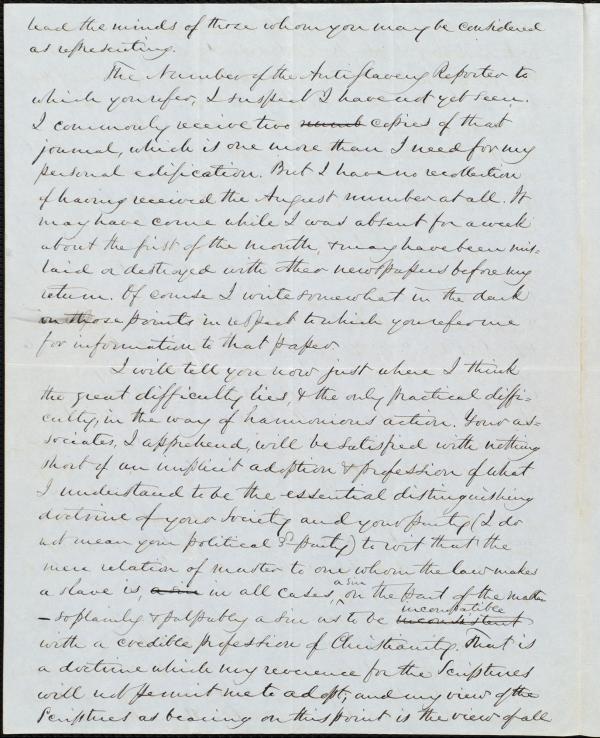 lead the minds of those whom you may be considered
as representing.
The Number of the Antislavery Reporter to
which you refer, I suspect I have not yet seen.
I commonly receive two numb copies of that
journal, which is one more than I need for my
personal edification. But I have no recollection
of having received the August number at all. It
may have come while I was absent for a week
about the first of the month, & may have been mis-
laid or destroyed with other newspapers before my
return. Of course I write somewhat in the dark
on those points in respect to which you refer me
for information to that paper.
I will tell you now just where I think
the great difficulty lies, & the only practical diffi-
culty, in the way of harmonious action. Your as-
sociates, I apprehend, will be satisfied with nothing
short of an implicit adoption & profession of what
I understand to be the essential distinguishing
doctrine of your Society and your party (I do
not mean your political 3d party) to wit that the
mere relation of master to one whom the law makes
a slave is, a sin in all cases, a sin on the part of the master
– so plainly & palpably a sin as to be inconsistent incompatible
with a credible profession of Christianity. That is
a doctrine which my reverence for the Scriptures
will not permit me to adopt, and my view of the
Scriptures as bearing on this point is the view of all